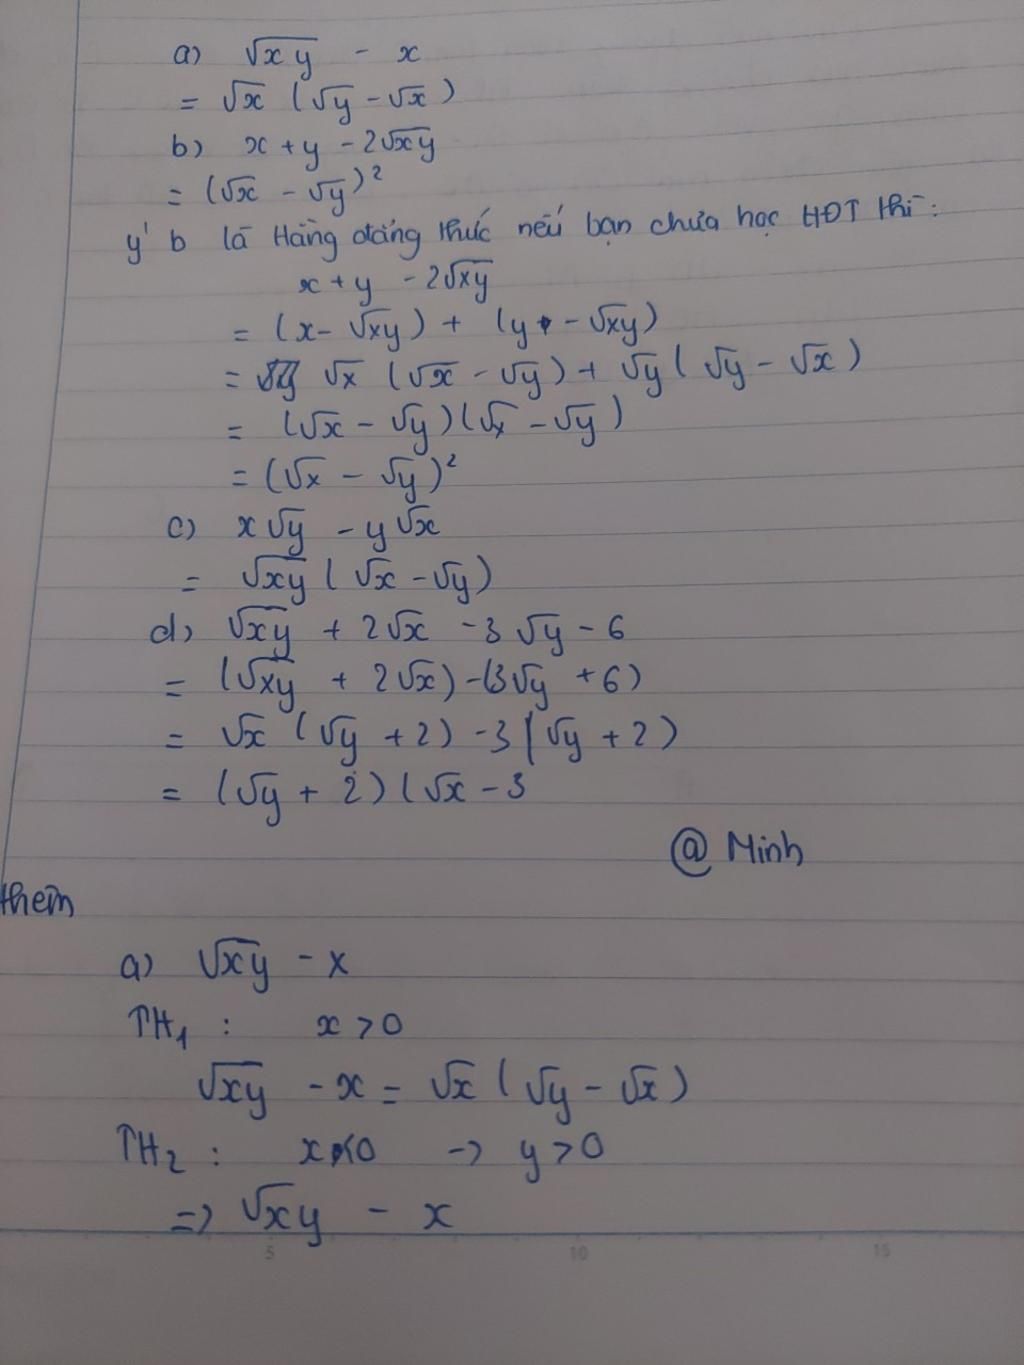 a) √xy - x
= √x (√y - √x)
b) x + y - 2√xy
= (√x - √y)²
y' b là Hằng đẳng thức nếu bạn chưa học HĐT thì:
x + y - 2√xy
= (x - √xy) + (y - √xy)
= √x (√x - √y) + √y (√y - √x)
= (√x - √y)(√x - √y)
= (√x - √y)²
c) x√y - y√x
= √xy (√x - √y)
d) √xy + 2√x - 3√y - 6
= (√xy + 2√x) - (3√y + 6)
= √x (√y + 2) - 3(√y + 2)
= (√y + 2)(√x - 3
@ Minh
thêm
a) √xy - x
TH₁ : x > 0
√xy - x = √x (√y - √x)
TH₂ : x < 0 -> y > 0
=> √xy - x
5 10 15